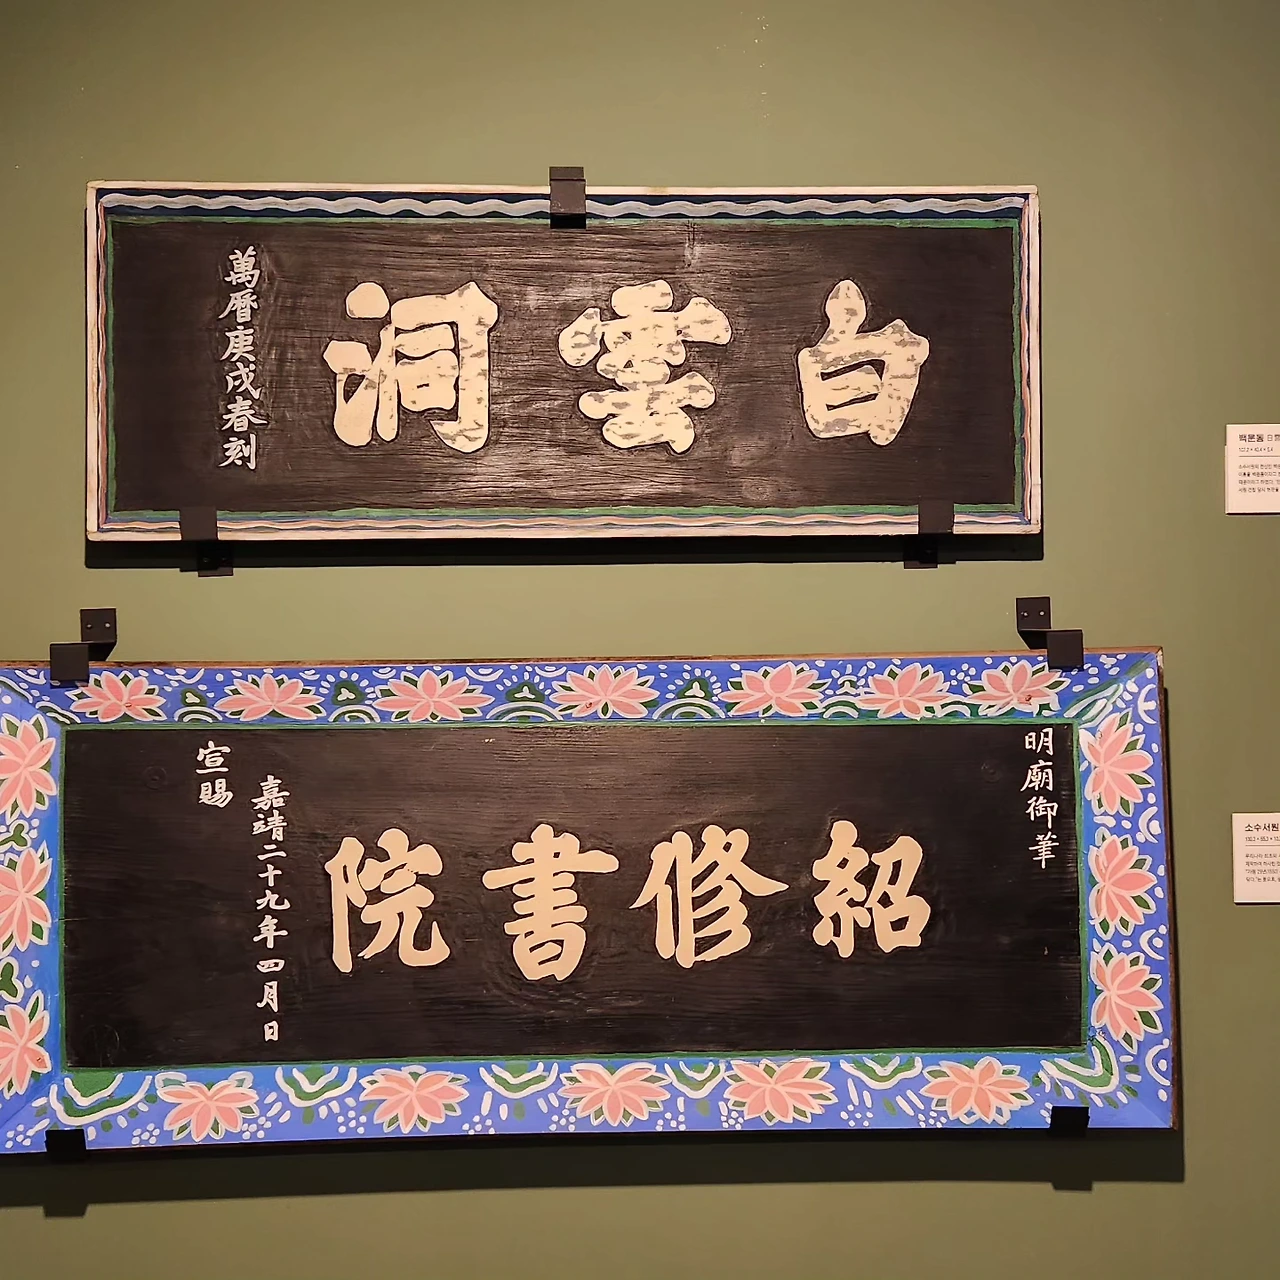 白雲洞
萬曆庚戌春刻
明廟御筆
紹修書院
嘉靖二十九年四月日
宣賜
백운동 白雲
소수서원